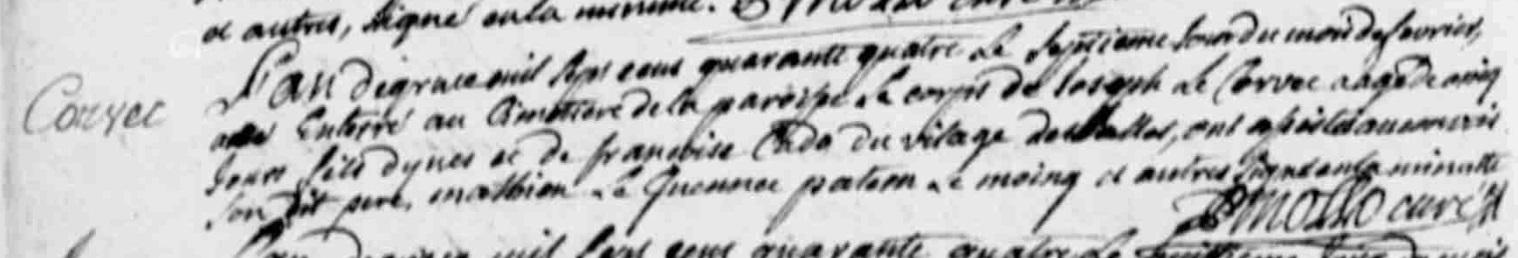 et autres, signé en la minutte.
L'an de grace mil sept cens quarante quatre le septieme jour du mois de fevrier,
Corvec
a été Enterré au Cimetiere de la paroisse Le corps de Joseph Le Corvec aagé de cinq
jours fils d'ynes et de francoise Cado du vilage des salles, ont assistés au convois
son dit pere, mathieu Le Quennec Le moing et autres signé en la minutte
Mollo curé
L'an de grace mil sept cens quarante quatre Le huitieme jour du mois